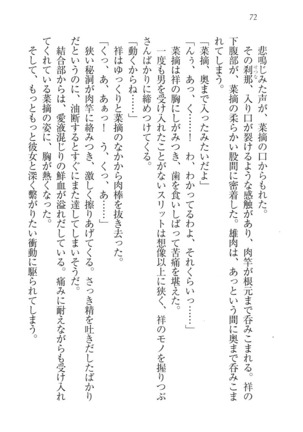 72
悲鳴じみた声が、菜摘の口からもれた。
その刹那、入り口が裂けるような感触があり、肉竿が根元まで呑みこまれる。祥の
下腹部が、菜摘の柔らかい股間に密着した。雄肉は、あっという間に奥まで呑みこま
れてしまう。
「菜摘、奥まで入ったみたいだよ」
「んぅ、あっ、くっ……！　わ、わかってるわよ、それくらいっ……」
菜摘は祥の胸にしがみつき、歯を食いしばって苦痛を堪えた。
一度も男を受けいれたことがないスリットは想像以上に狭く、祥のモノを握りつぶ
さんばかりに締めつけてくる。
「動くからね……」
祥はゆっくりと菜摘のなかから肉棒を抜き去った。
「くっ、あ、あぁっ……く、くっ、あ……」
狭い秘洞が肉竿に絡みつき、激しく擦りあげてくる。さっき精を吐きだしたばかり
だというのに、油断するとすぐにまた達してしまいそうだ。
結合部からは、愛液混じりの鮮血が溢れだしている。痛みに耐えながらも受け入れ
てくれている菜摘の姿に、胸が熱くなった。
そして、もっともっと彼女と深く繋がりたい衝動に駆られてしまう。